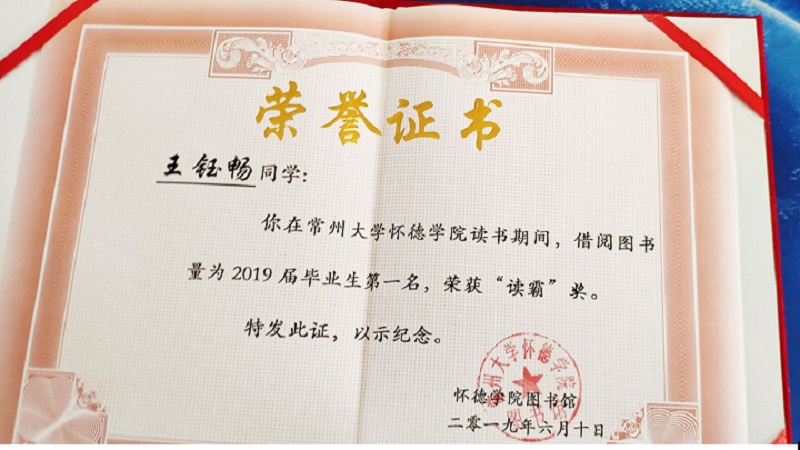 荣誉证书
王钰畅同学：
你在常州大学怀德学院读书期间，借阅图书
量为2019届毕业生第一名，荣获“读霸”奖。
特发此证，以示纪念。
常州大学怀德学院
图书馆
怀德学院图书馆
二零一九年六月十日